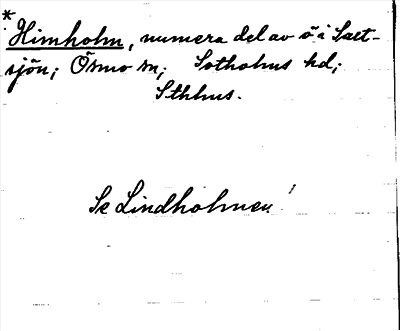 *
Himholm, numera del av ö i Salt-
sjön; Ösmo sn; Sotholms hd;
Sthlms.
Se Lindholmen!